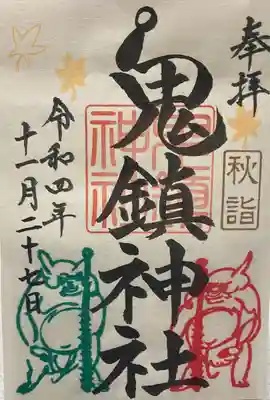 奉拝
秋詣
鬼鎮神社
令和四年
十一月二十七日